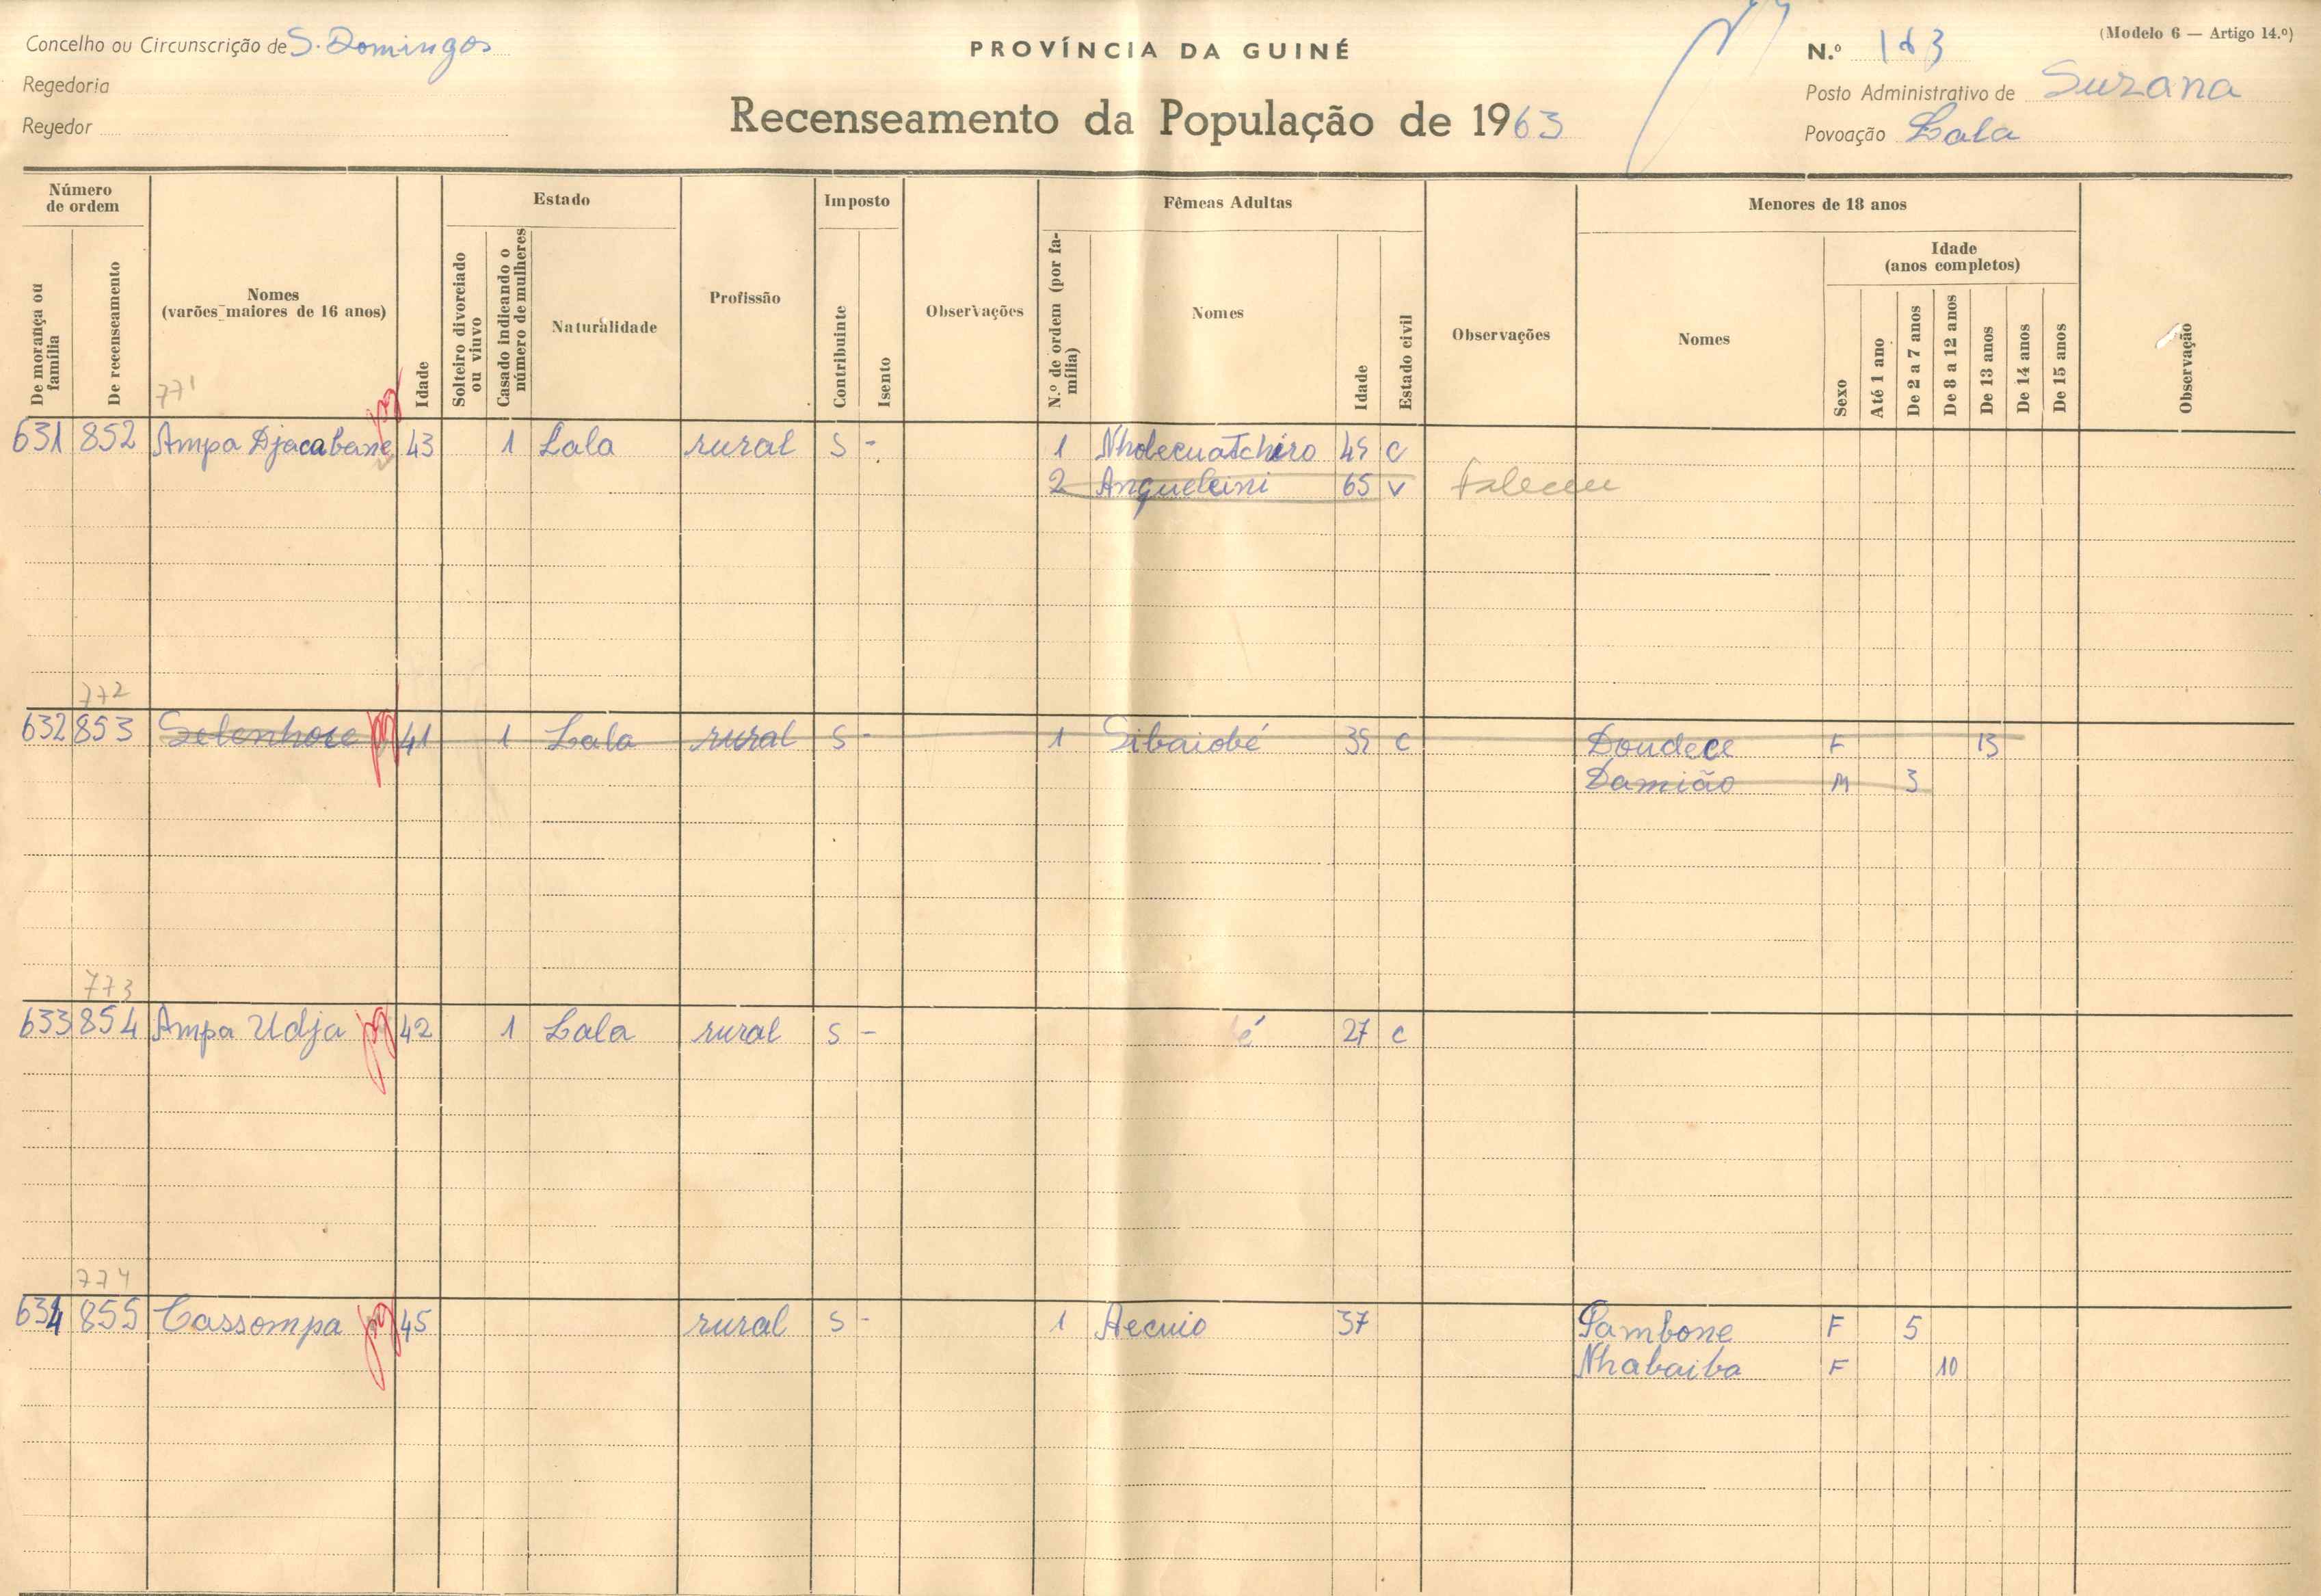 Concelho ou Circunscrição de S. Domingos
PROVÍNCIA DA GUINÉ
N.º 183
(Modelo 6 — Artigo 14.º)
Regedoria
Posto Administrativo de Suzana
Regedor
Recenseamento da População de 1963
Povoação Lala
Número de ordem
Estado
Imposto
Fêmeas Adultas
Menores de 18 anos
De morança ou família
De recenseamento
Nomes (varões maiores de 16 anos)
Idade
Solteiro divorciado ou viuvo
Casado indicando o número de mulheres
Naturalidade
Profissão
Contribuinte
Isento
Observações
N.º de ordem (por família)
Nomes
Idade
Estado civil
Observações
Nomes
Sexo
Idade (anos completos)
Até 1 ano
De 2 a 7 anos
De 8 a 12 anos
De 13 anos
De 14 anos
De 15 anos
Observação
771
631 852 Ampa Djacabane 43 1 Lala rural S - 1 Nholecuatchiro 45 C
2 Angueleini 65 V faleceu
772
632 853 41 1 Lala rural S - 1 Sibaiobé 35 C Doudece F 13
Damião M 3
773
633 854 Ampa Udja 42 1 Lala rural S - é 27 C
774
634 855 Cassompa 45 rural S - 1 Aecuio 37 Pambone F 5
Nhabaiba F 10